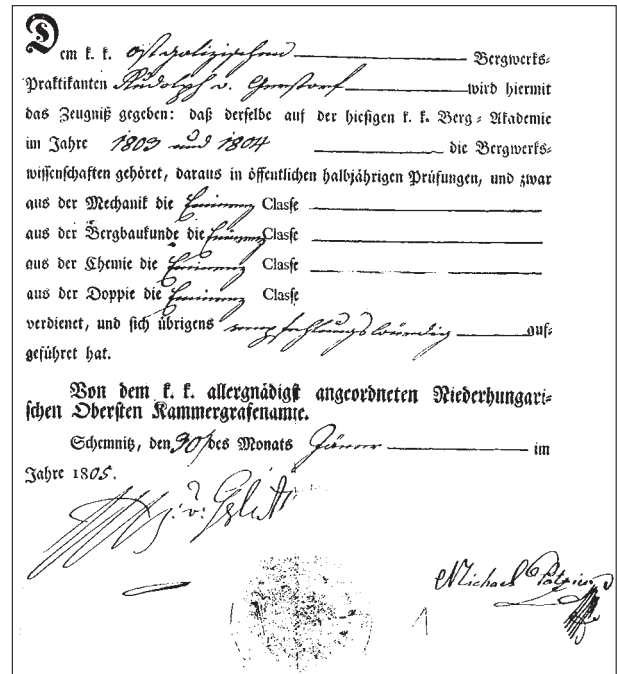 Dem k. k. ostgalizischen Bergwerks-
Praktikanten Rudolph v. Gersdorf wird hiermit
das Zeugniß gegeben: daß derselbe auf der hiesigen k. k. Berg-Akademie
im Jahre 1803 und 1804 die Bergwerks-
wissenschaften gehöret, daraus in öffentlichen halbjährigen Prüfungen, und zwar
aus der Mechanik die Eminenz Classe
aus der Bergbaukunde die Eminenz Classe
aus der Chemie die Eminenz Classe
aus der Doppie die Eminenz Classe
verdienet, und sich übrigens empfehlungswürdig auf-
geführet hat.
Von dem k. k. allergnädigst angeordneten Niederhungari-
schen Obersten Kammergrafenamte.
Schemnitz, den 30 des Monats Jäner im
Jahre 1805.
Michael Patzier